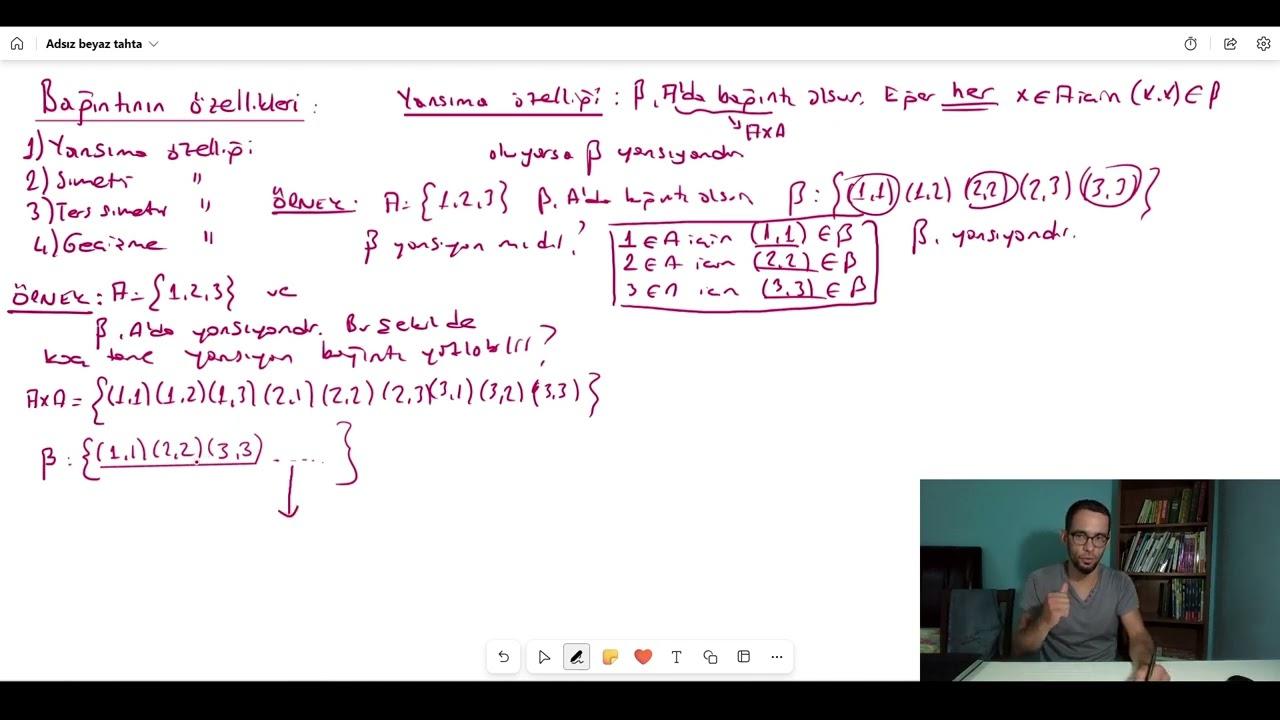 Adsız beyaz tahta
Bağıntının özellikleri:
1) Yansıma özelliği
2) Simetri "
3) Ters simetri "
4) Geçişme "
Yansıma özelliği: β, A'da bağıntı olsun. Eğer her x∈A için (x,x)∈β
AxA
oluyorsa β yansıyandır
ÖRNEK: A={1,2,3} β, A'da bağıntı olsun β:{(1,1)(1,2)(2,2)(2,3)(3,3)}
β yansıyan mıdır?
1∈A için (1,1)∈β
2∈A için (2,2)∈β
3∈A için (3,3)∈β
β, yansıyandır.
ÖRNEK: A={1,2,3} ve
β, A'da yansıyandır. Bu şekilde
kaç tane yansıyan bağıntı yazılabilir?
AxA={(1,1)(1,2)(1,3)(2,1)(2,2)(2,3)(3,1)(3,2)(3,3)}
β:{(1,1)(2,2)(3,3) ......}